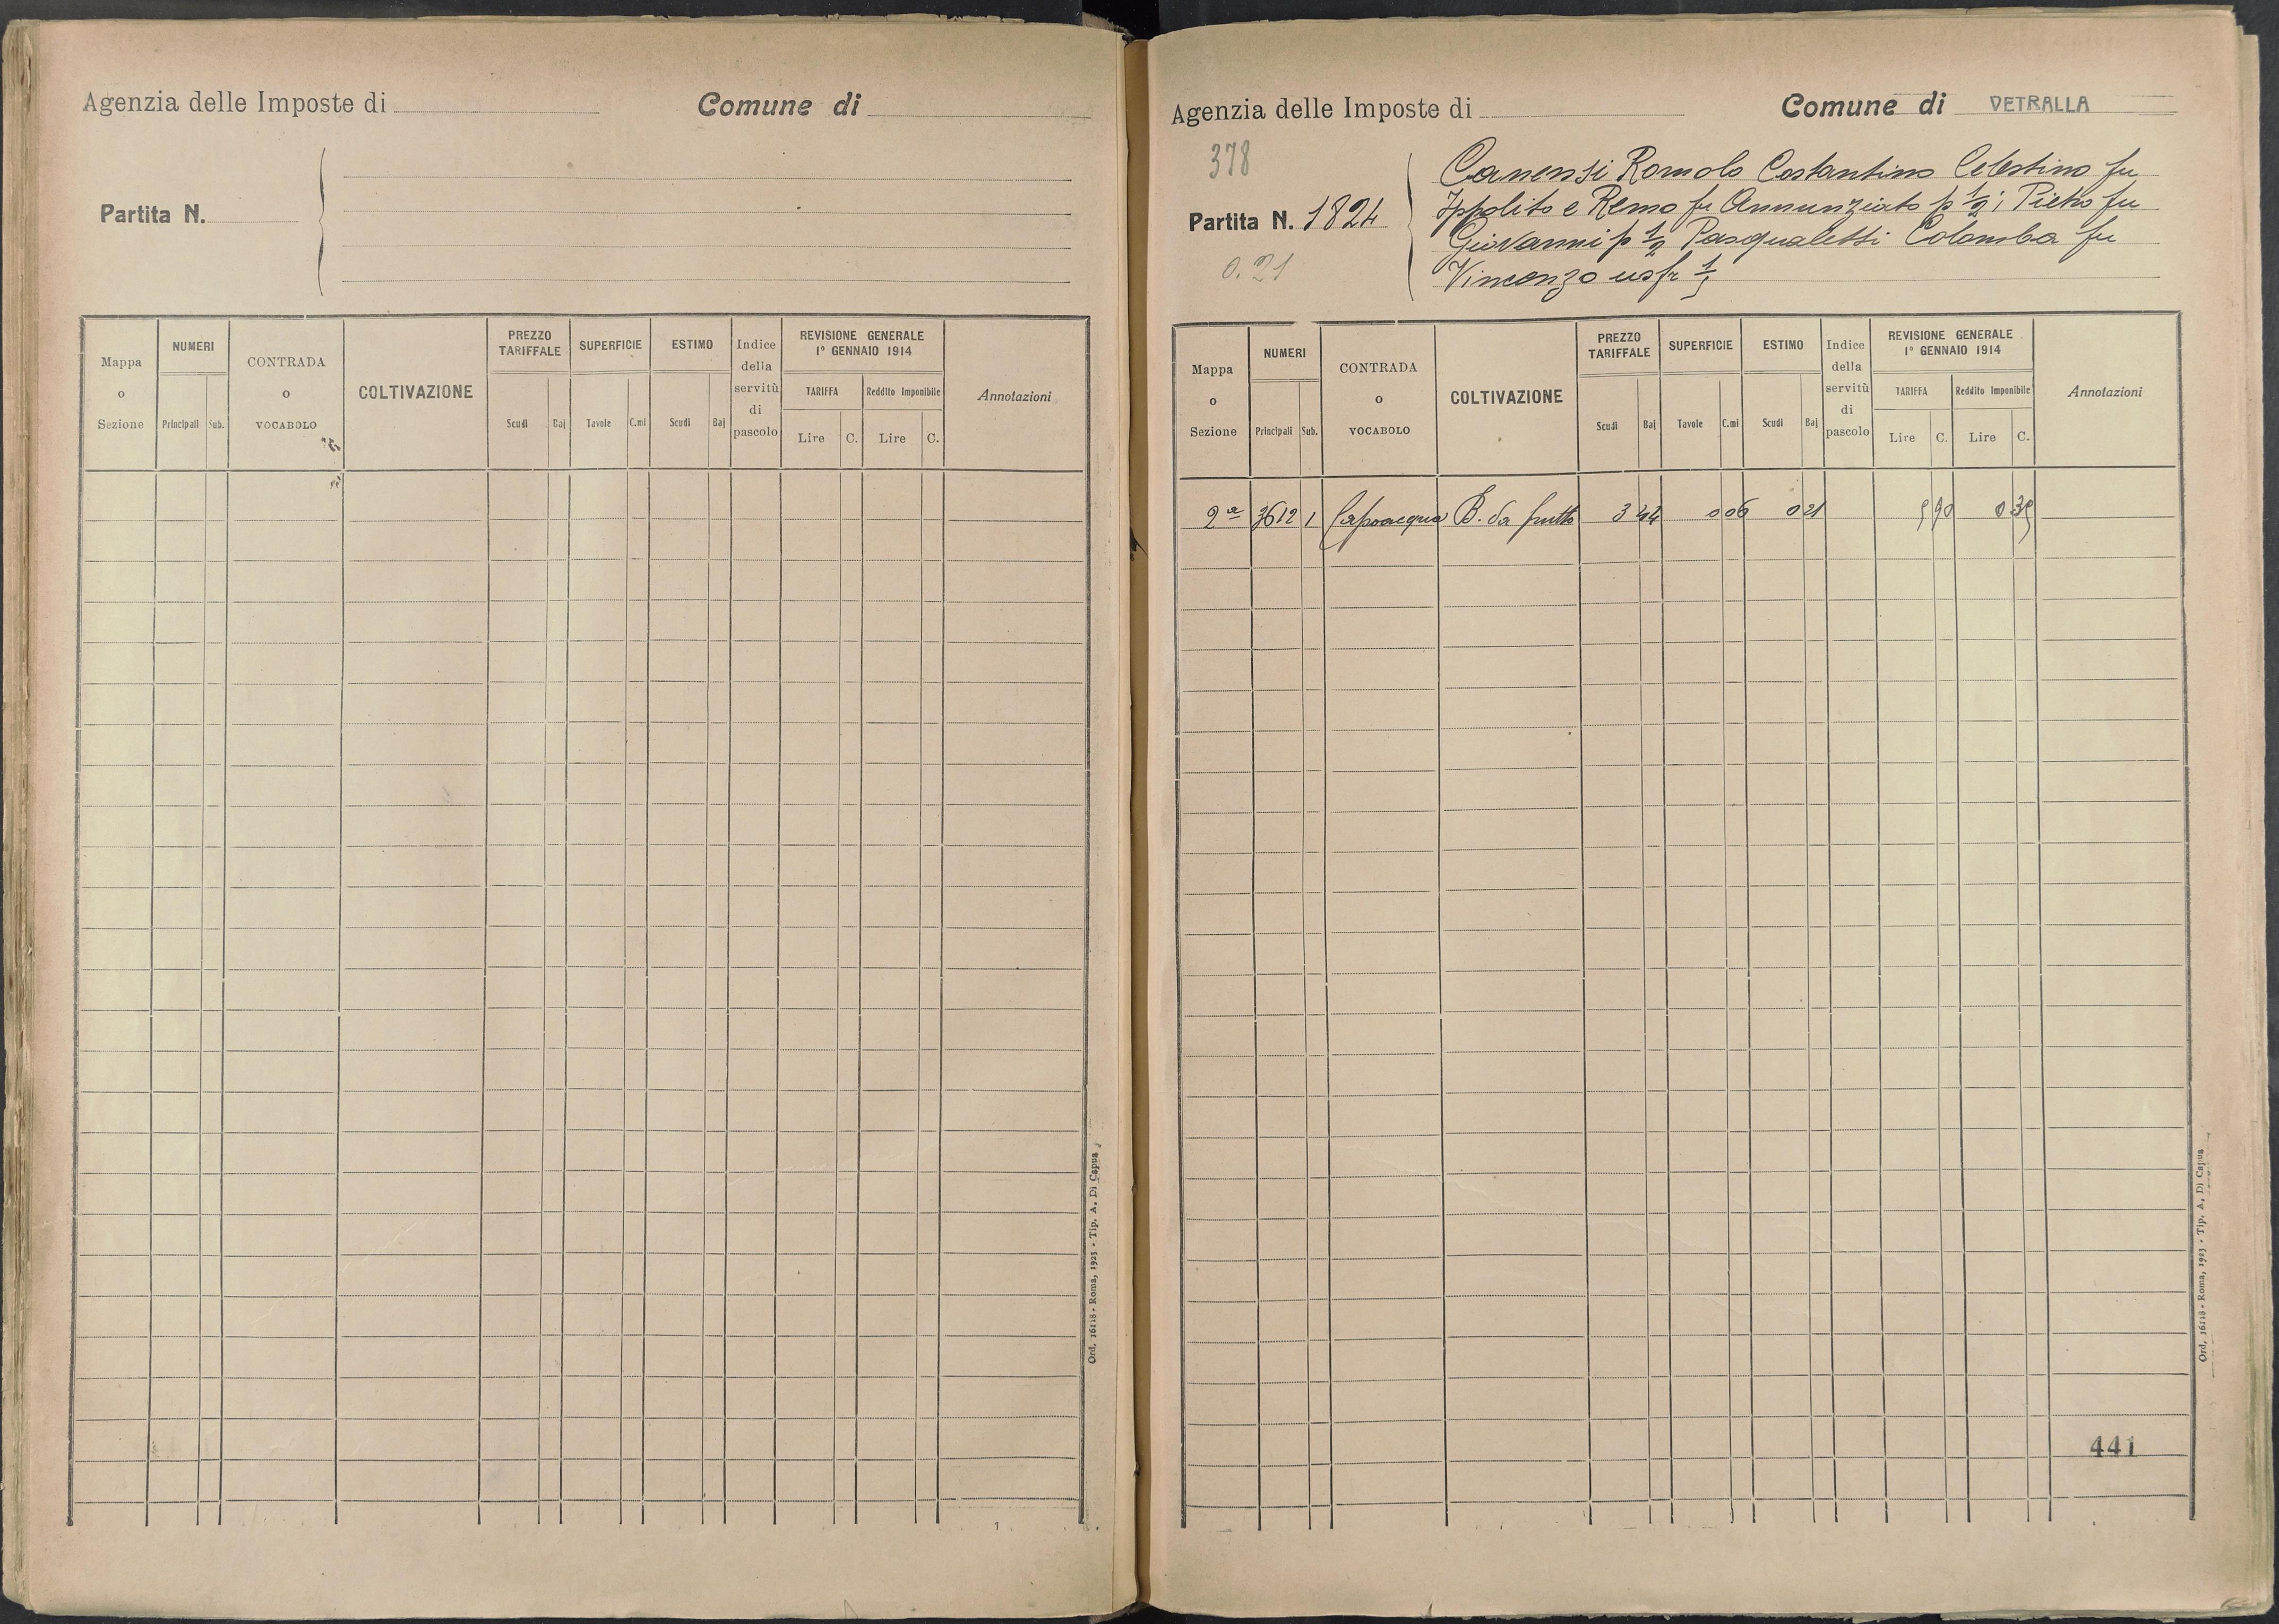 Agenzia delle Imposte di
Comune di
Partita N.
Mappa o Sezione
NUMERI
Principali Sub.
CONTRADA o VOCABOLO
COLTIVAZIONE
PREZZO TARIFFALE
Scudi Baj
SUPERFICIE
Tavole C.mi
ESTIMO
Scudi Baj
Indice della servitù di pascolo
REVISIONE GENERALE
1° GENNAIO 1914
TARIFFA
Lire C.
Reddito Imponibile
Lire C.
Annotazioni
Ord. 16118 - Roma, 1923 - Tip. A. Di Capua
Agenzia delle Imposte di
Comune di VETRALLA
378
Partita N. 1824
0.21
Canensi Romolo Costantino Celestino fu
Ippolito e Remo fu Annunziato p 1/2; Pietro fu
Giovanni p 1/2 Pasqualetti Colomba fu
Vincenzo usfr
Mappa o Sezione
NUMERI
Principali Sub.
CONTRADA o VOCABOLO
COLTIVAZIONE
PREZZO TARIFFALE
Scudi Baj
SUPERFICIE
Tavole C.mi
ESTIMO
Scudi Baj
Indice della servitù di pascolo
REVISIONE GENERALE
1° GENNAIO 1914
TARIFFA
Lire C.
Reddito Imponibile
Lire C.
Annotazioni
2a 3612 1 Capoacqua B. da frutto 3 44 0 06 0 21 0 39
441
Ord. 16118 - Roma, 1923 - Tip. A. Di Capua